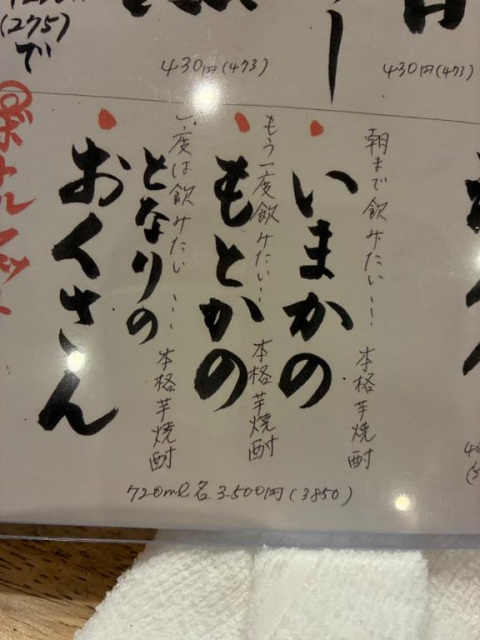 430円(473)
430円(473)
朝まで飲みたい…!
いまかの
本格芋焼酎
もう一度飲みたい…!
もとかの
本格芋焼酎
一度は飲みたい…
となりの
おくさん
本格芋焼酎
720ml 各3,500円(3850)
(275)
で
ボトルマッ